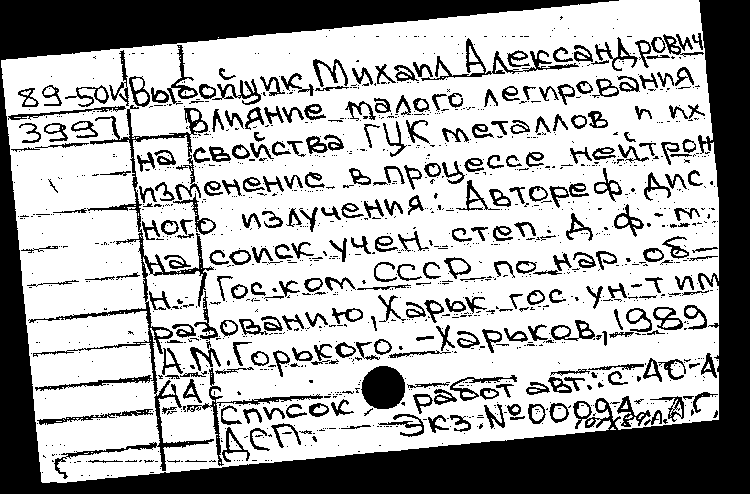 89-50К Выбойщик, Михаил Александрович
3997 Влияние малого легирования
на свойства ГЦК металлов и их
изменение в процессе нейтрон
ного излучения: Автореф. дис.
на соиск. учен. степ. д. ф.-м.
н. / Гос. ком. СССР по нар. об-
разованию, Харьк. гос. ун-т им
А.М. Горького. - Харьков, 1989.
44 с.
Список работ авт.: с. 40-4
ДСП. Экз. №00094